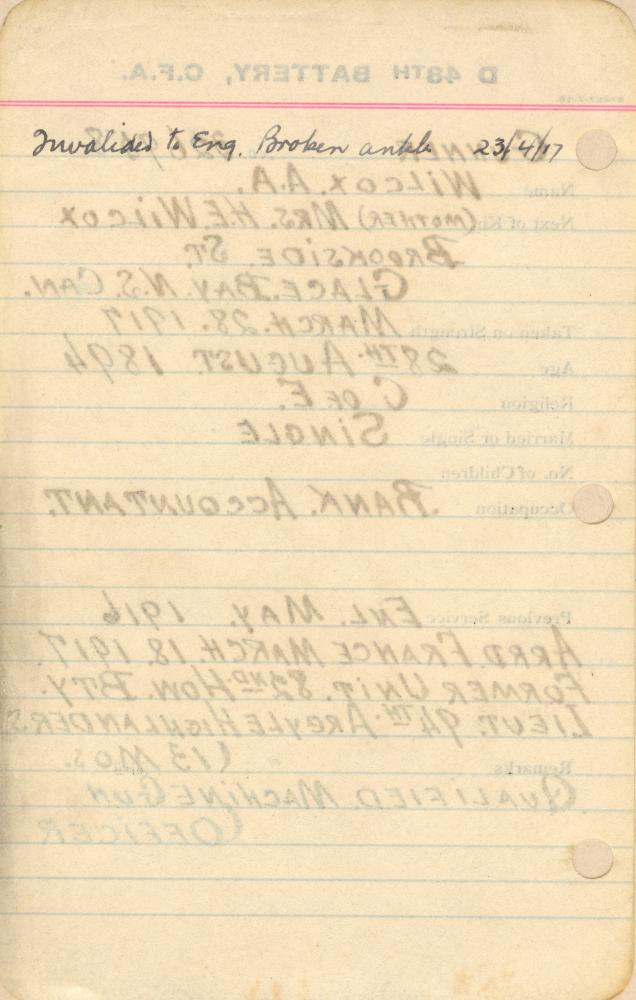 D 48TH BATTERY, C.F.A.
Invalided to Eng. Broken ankle 23/4/17
Name WILCOX. A.A.
Next of Kin (MOTHER) MRS. H.E. WILCOX
BROOKSIDE. ST.
GLACE. BAY. N.S. CAN.
Taken on Strength MARCH. 28. 1917
Age 28TH AUGUST. 1894
Religion C OF E.
Married or Single SINGLE
No. of Children
Occupation BANK. ACCOUNTANT.
Previous Service ENL. MAY. 1916
ARRD. FRANCE MARCH. 18. 1917.
FORMER UNIT. 82ND HOW. BTY.
LIEUT. 94TH ARGYLE HIGHLANDERS
Remarks (13 MOS.
QUALIFIED MACHINE GUN
OFFICER